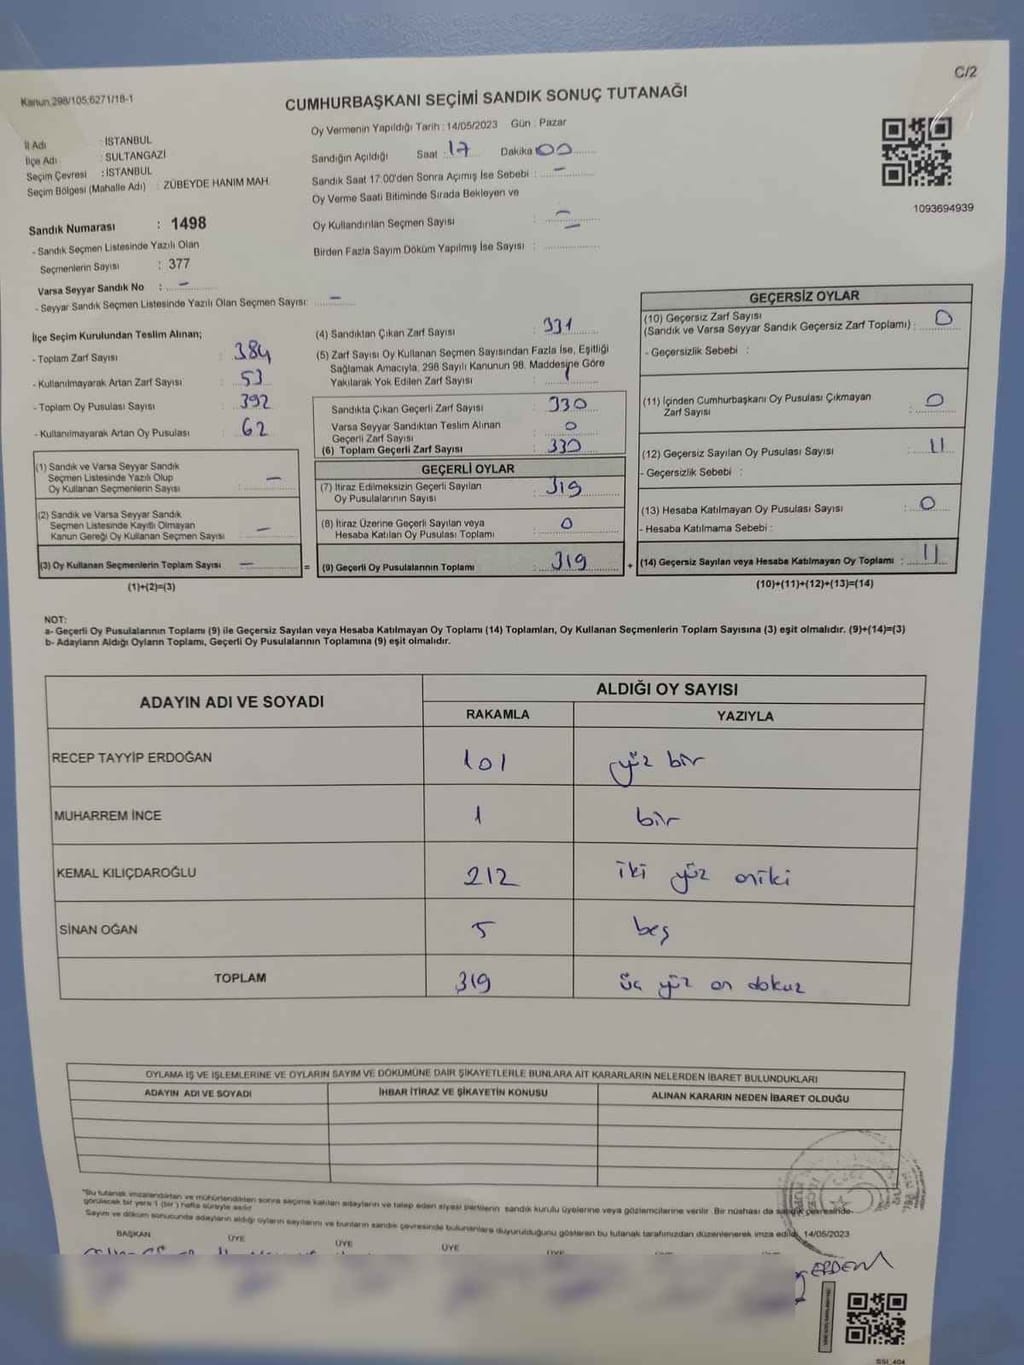 Kanun.298/105;6271/18-1
C/2
CUMHURBAŞKANI SEÇİMİ SANDIK SONUÇ TUTANAĞI
İl Adı : İSTANBUL
İlçe Adı : SULTANGAZİ
Seçim Çevresi : İSTANBUL
Seçim Bölgesi (Mahalle Adı) : ZÜBEYDE HANIM MAH.
Sandık Numarası : 1498
- Sandık Seçmen Listesinde Yazılı Olan
Seçmenlerin Sayısı : 377
Varsa Seyyar Sandık No : -
- Seyyar Sandık Seçmen Listesinde Yazılı Olan Seçmen Sayısı: -
Oy Vermenin Yapıldığı Tarih : 14/05/2023 Gün : Pazar
Sandığın Açıldığı Saat : 17 Dakika 00
Sandık Saat 17.00'den Sonra Açımış İse Sebebi : -
Oy Verme Saati Bitiminde Sırada Bekleyen ve
Oy Kullandırılan Seçmen Sayısı : -
Birden Fazla Sayım Döküm Yapılmış İse Sayısı : -
1093694939
İlçe Seçim Kurulundan Teslim Alınan;
- Toplam Zarf Sayısı : 384
- Kullanılmayarak Artan Zarf Sayısı : 53
- Toplam Oy Pusulası Sayısı : 392
- Kullanılmayarak Artan Oy Pusulası : 62
(1) Sandık ve Varsa Seyyar Sandık
Seçmen Listesinde Yazılı Olup
Oy Kullanan Seçmenlerin Sayısı : -
(2) Sandık ve Varsa Seyyar Sandık
Seçmen Listesinde Kayıtlı Olmayan
Kanun Gereği Oy Kullanan Seçmen Sayısı : -
(3) Oy Kullanan Seçmenlerin Toplam Sayısı : -
(1)+(2)=(3)
(4) Sandıktan Çıkan Zarf Sayısı : 331
(5) Zarf Sayısı Oy Kullanan Seçmen Sayısından Fazla İse, Eşitliği
Sağlamak Amacıyla, 298 Sayılı Kanunun 98. Maddesine Göre
Yakılarak Yok Edilen Zarf Sayısı : 1
Sandıkta Çıkan Geçerli Zarf Sayısı : 330
Varsa Seyyar Sandıktan Teslim Alınan
Geçerli Zarf Sayısı : 0
(6) Toplam Geçerli Zarf Sayısı : 330
GEÇERLİ OYLAR
(7) İtiraz Edilmeksizin Geçerli Sayılan
Oy Pusulalarının Sayısı : 319
(8) İtiraz Üzerine Geçerli Sayılan veya
Hesaba Katılan Oy Pusulası Toplamı : 0
= (9) Geçerli Oy Pusulalarının Toplamı : 319
GEÇERSİZ OYLAR
(10) Geçersiz Zarf Sayısı
(Sandık ve Varsa Seyyar Sandık Geçersiz Zarf Toplamı) : 0
- Geçersizlik Sebebi :
(11) İçinden Cumhurbaşkanı Oy Pusulası Çıkmayan
Zarf Sayısı : 0
(12) Geçersiz Sayılan Oy Pusulası Sayısı : 11
- Geçersizlik Sebebi :
(13) Hesaba Katılmayan Oy Pusulası Sayısı : 0
- Hesaba Katılmama Sebebi :
+ (14) Geçersiz Sayılan veya Hesaba Katılmayan Oy Toplamı : 11
(10)+(11)+(12)+(13)=(14)
NOT:
a- Geçerli Oy Pusulalarının Toplamı (9) ile Geçersiz Sayılan veya Hesaba Katılmayan Oy Toplamı (14) Toplamları, Oy Kullanan Seçmenlerin Toplam Sayısına (3) eşit olmalıdır. (9)+(14)=(3)
b- Adayların Aldığı Oyların Toplamı, Geçerli Oy Pusulalarının Toplamına (9) eşit olmalıdır.
ADAYIN ADI VE SOYADI
ALDIĞI OY SAYISI
RAKAMLA YAZIYLA
RECEP TAYYİP ERDOĞAN 101 yüz bir
MUHARREM İNCE 1 bir
KEMAL KILIÇDAROĞLU 212 iki yüz oniki
SİNAN OĞAN 5 beş
TOPLAM 319 üç yüz on dokuz
OYLAMA İŞ VE İŞLEMLERİNE VE OYLARIN SAYIM VE DÖKÜMÜNE DAİR ŞİKAYETLERLE BUNLARA AİT KARARLARIN NELERDEN İBARET BULUNDUKLARI
ADAYIN ADI VE SOYADI İHBAR İTİRAZ VE ŞİKAYETİN KONUSU ALINAN KARARIN NEDEN İBARET OLDUĞU
"Bu tutanak imzalandıktan ve mühürlendikten sonra seçime katılan adayların ve talep eden siyasi partilerin sandık kurulu üyelerine veya gözlemcilerine verilir. Bir nüshası da sandık çevresinde
görülecek bir yere 1 (bir) hafta süreyle asılır
Sayım ve döküm sonucunda adayların aldığı oyların sayılarını ve bunların sandık çevresinde bulunanlara duyurulduğunu gösteren bu tutanak tarafımızdan düzenlenerek imza edildi. 14/05/2023
BAŞKAN ÜYE ÜYE ÜYE
ERDEM